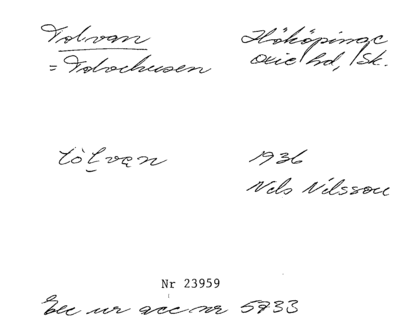 Tolvan
= Tolvhusen
Hököpinge
Oxie hd, Sk.
tòl̬van
1936
Nels Nilsson
Nr 23959
Exc ur acc nr 5733